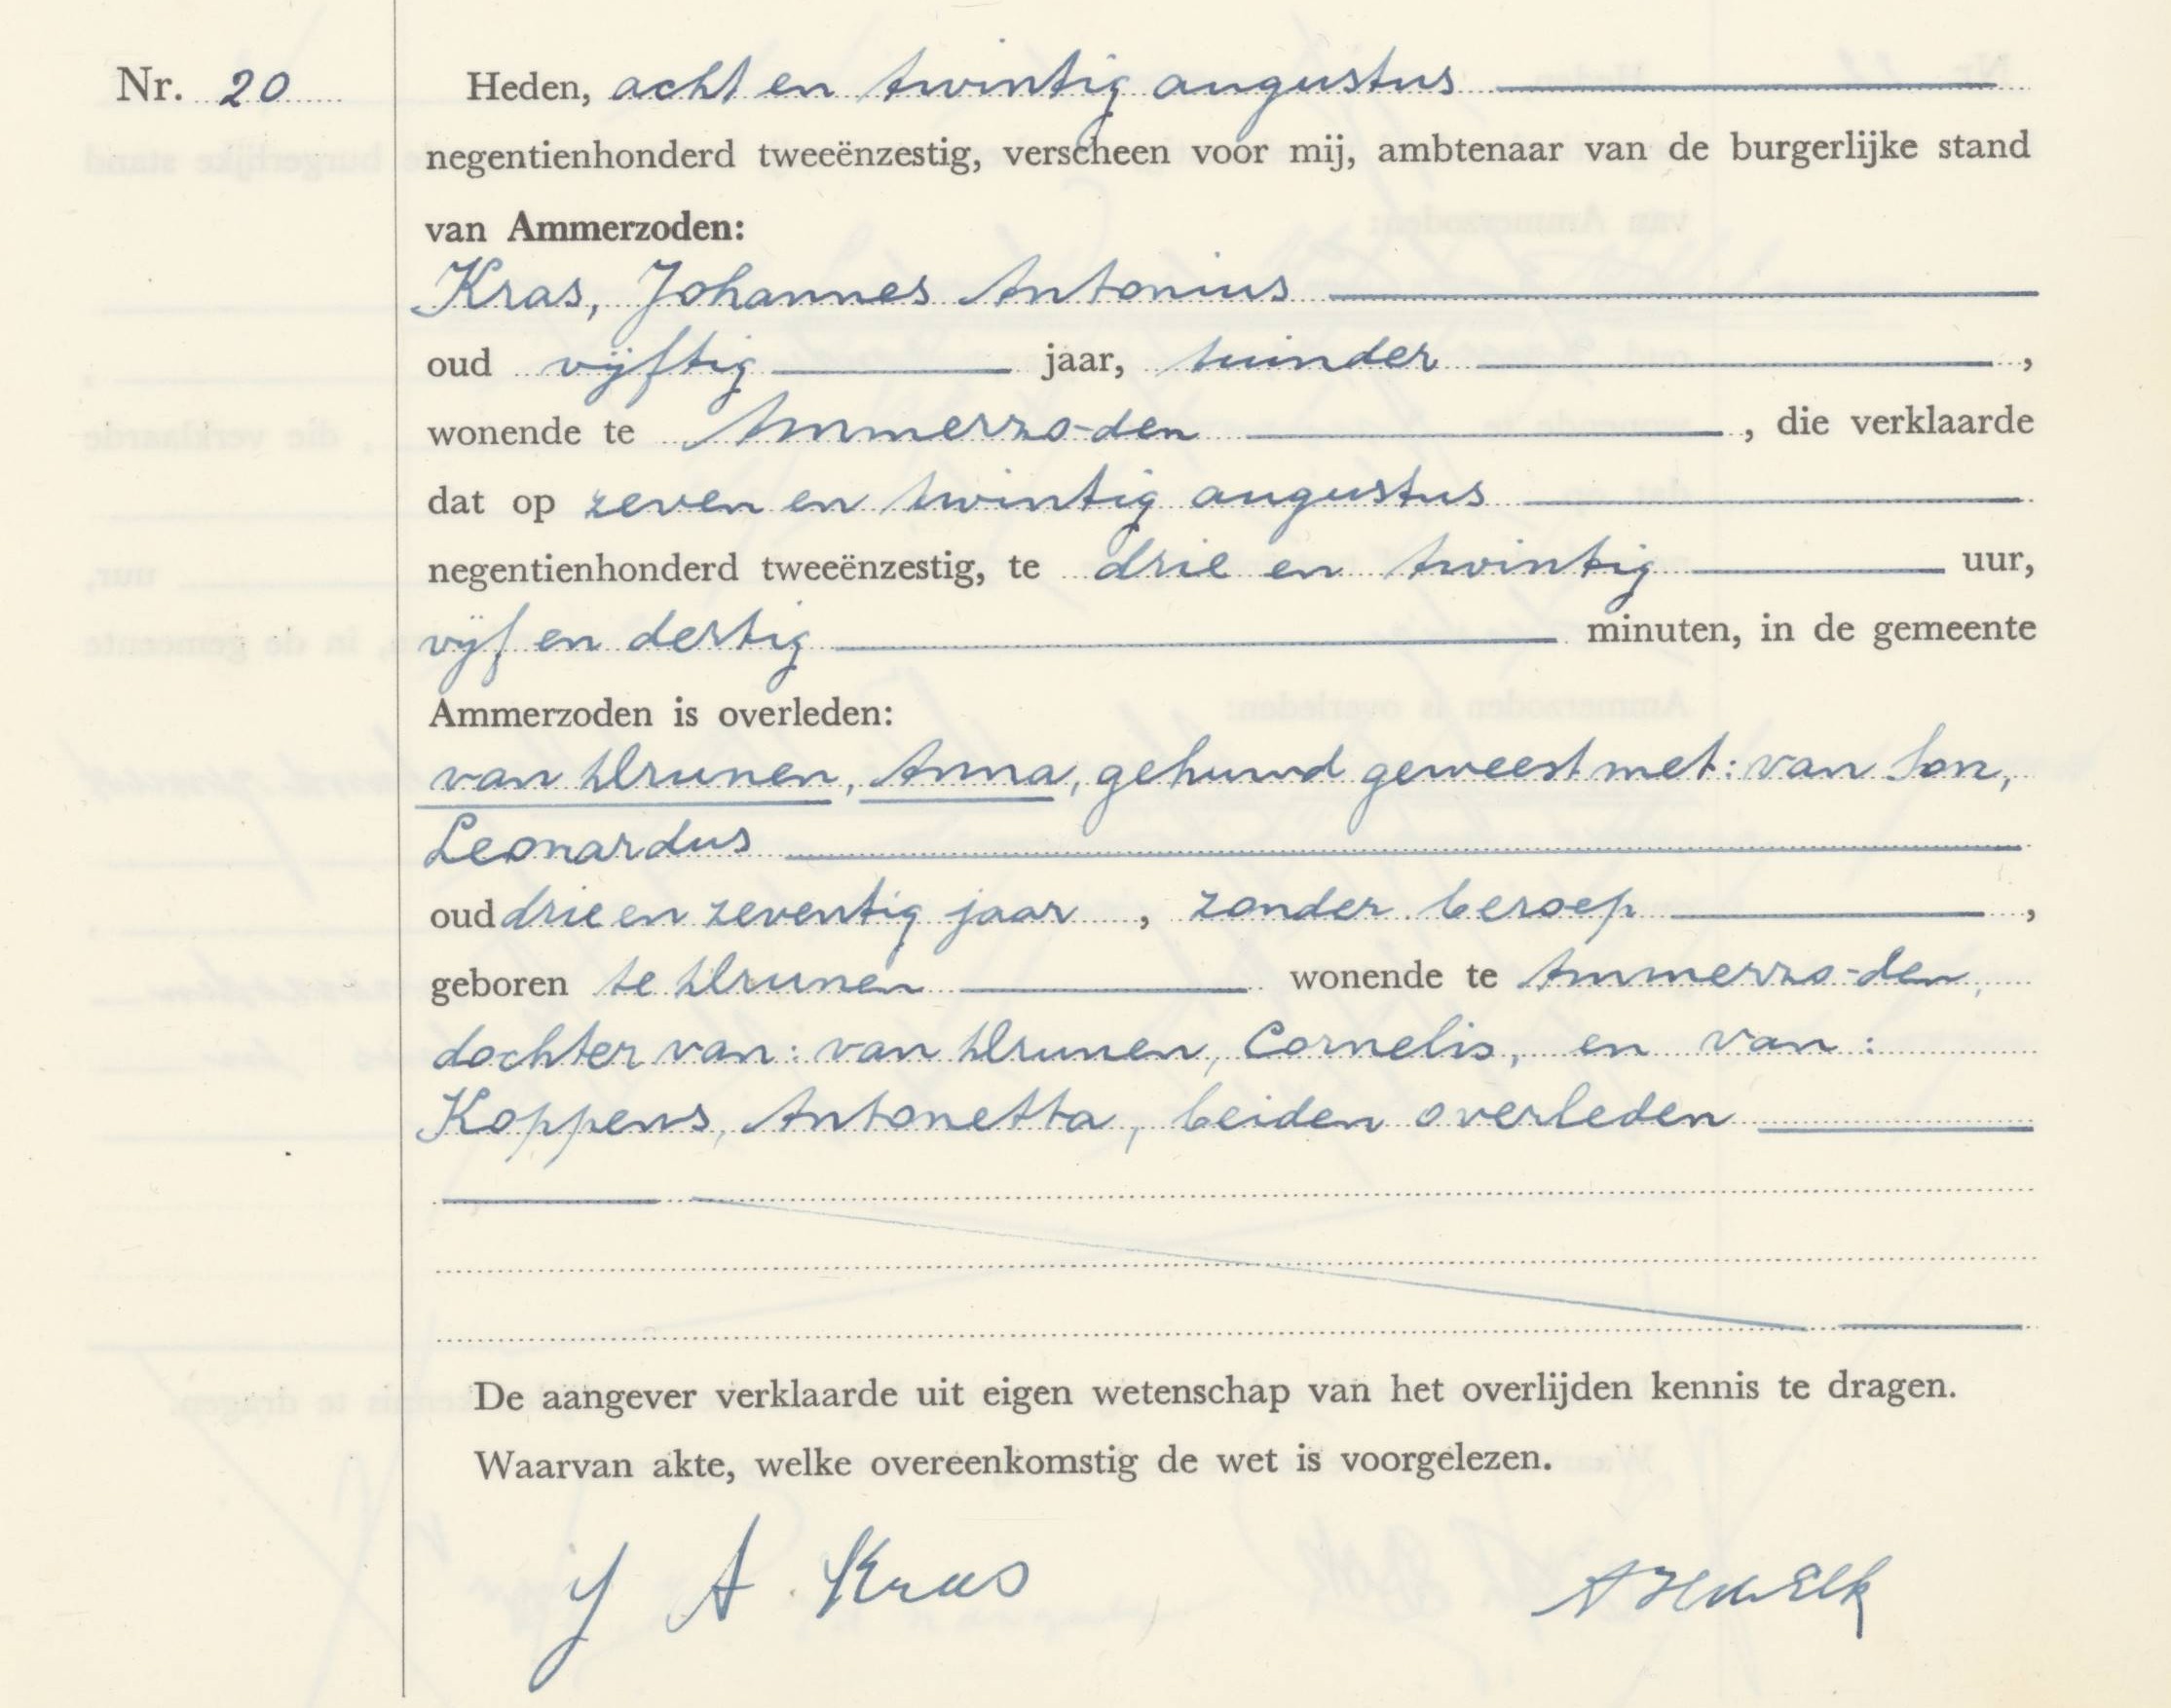 Nr. 20
Heden, acht en twintig augustus
negentienhonderd tweeënzestig, verscheen voor mij, ambtenaar van de burgerlijke stand
van Ammerzoden:
Kras, Johannes Antonius
oud vijftig jaar, tuinder,
wonende te Ammerzo-den, die verklaarde
dat op zeven en twintig augustus
negentienhonderd tweeënzestig, te drie en twintig uur,
vijf en dertig minuten, in de gemeente
Ammerzoden is overleden:
van Drunen, Anna, gehuwd geweest met: van Son,
Leonardus
oud drie en zeventig jaar, zonder beroep,
geboren te Drunen wonende te Ammerzo-den,
dochter van: van Drunen, Cornelis, en van:
Koppens, Antonetta, beiden overleden
De aangever verklaarde uit eigen wetenschap van het overlijden kennis te dragen.
Waarvan akte, welke overeenkomstig de wet is voorgelezen.
J A Kras